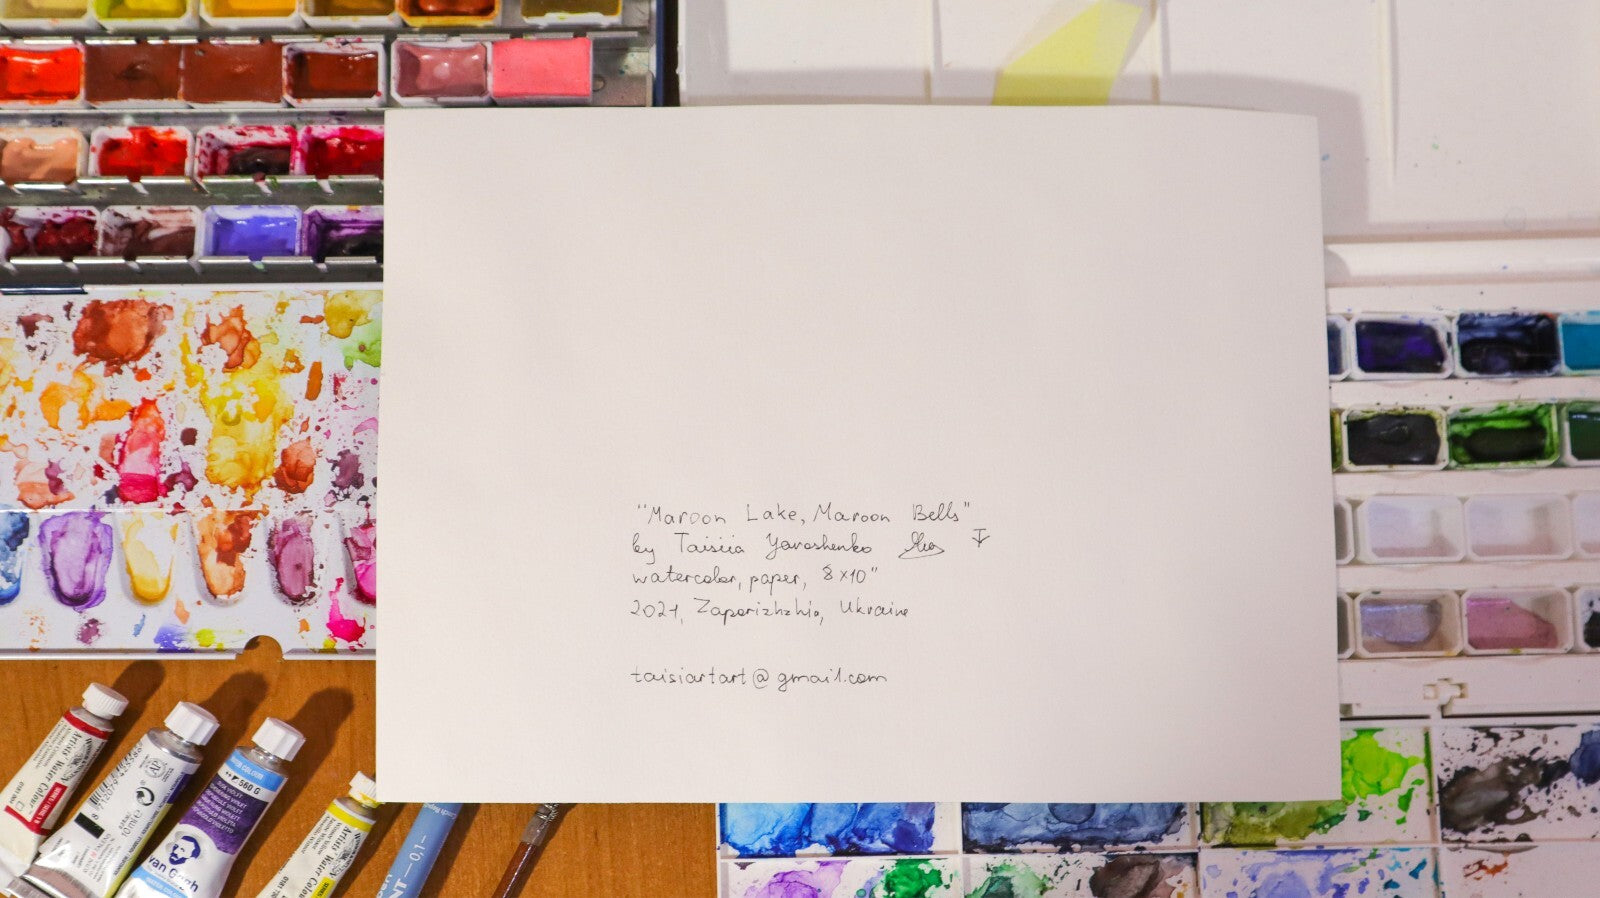 "Maroon Lake, Maroon Bells"
by Taisiia Yaroshenko
watercolor, paper, 8x10"
2021, Zaporizhzhia, Ukraine
taisiartart@gmail.com
Artists' Water Colour
560 G
van Gogh
Artists' Water Colour
0,1